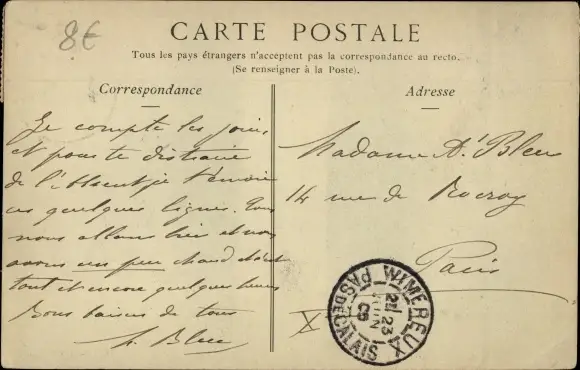 8€
CARTE POSTALE
Tous les pays étrangers n'acceptent pas la correspondance au recto.
(Se renseigner à la Poste).
Correspondance
Adresse
Je compte les jours,
et pour te distraire
de l'Absent je t'envoie
ces quelques lignes. Tous
nous allons bien et nous
avons un peu chaud
tout et encore quelques
Bons baisers de tous
A. Bleu
Madame A. Bleu
14 rue de Rocroy
Paris
X
WIMEREUX
PAS DE CALAIS